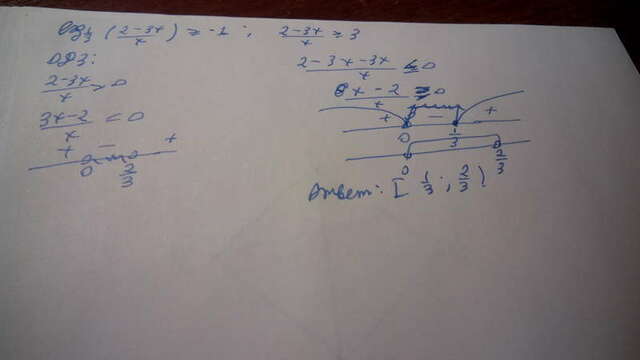 log⅓ (2-3x/x) ≥ -1 ; 2-3x/x ≤ 3
ОДЗ:
2-3x/x > 0
3x-2/x < 0
+ - +
0 2/3
2-3x-3x/x ≤ 0
6x-2/x ≥ 0
+ - +
0 1/3
0 2/3
Ответ: [1/3 ; 2/3)